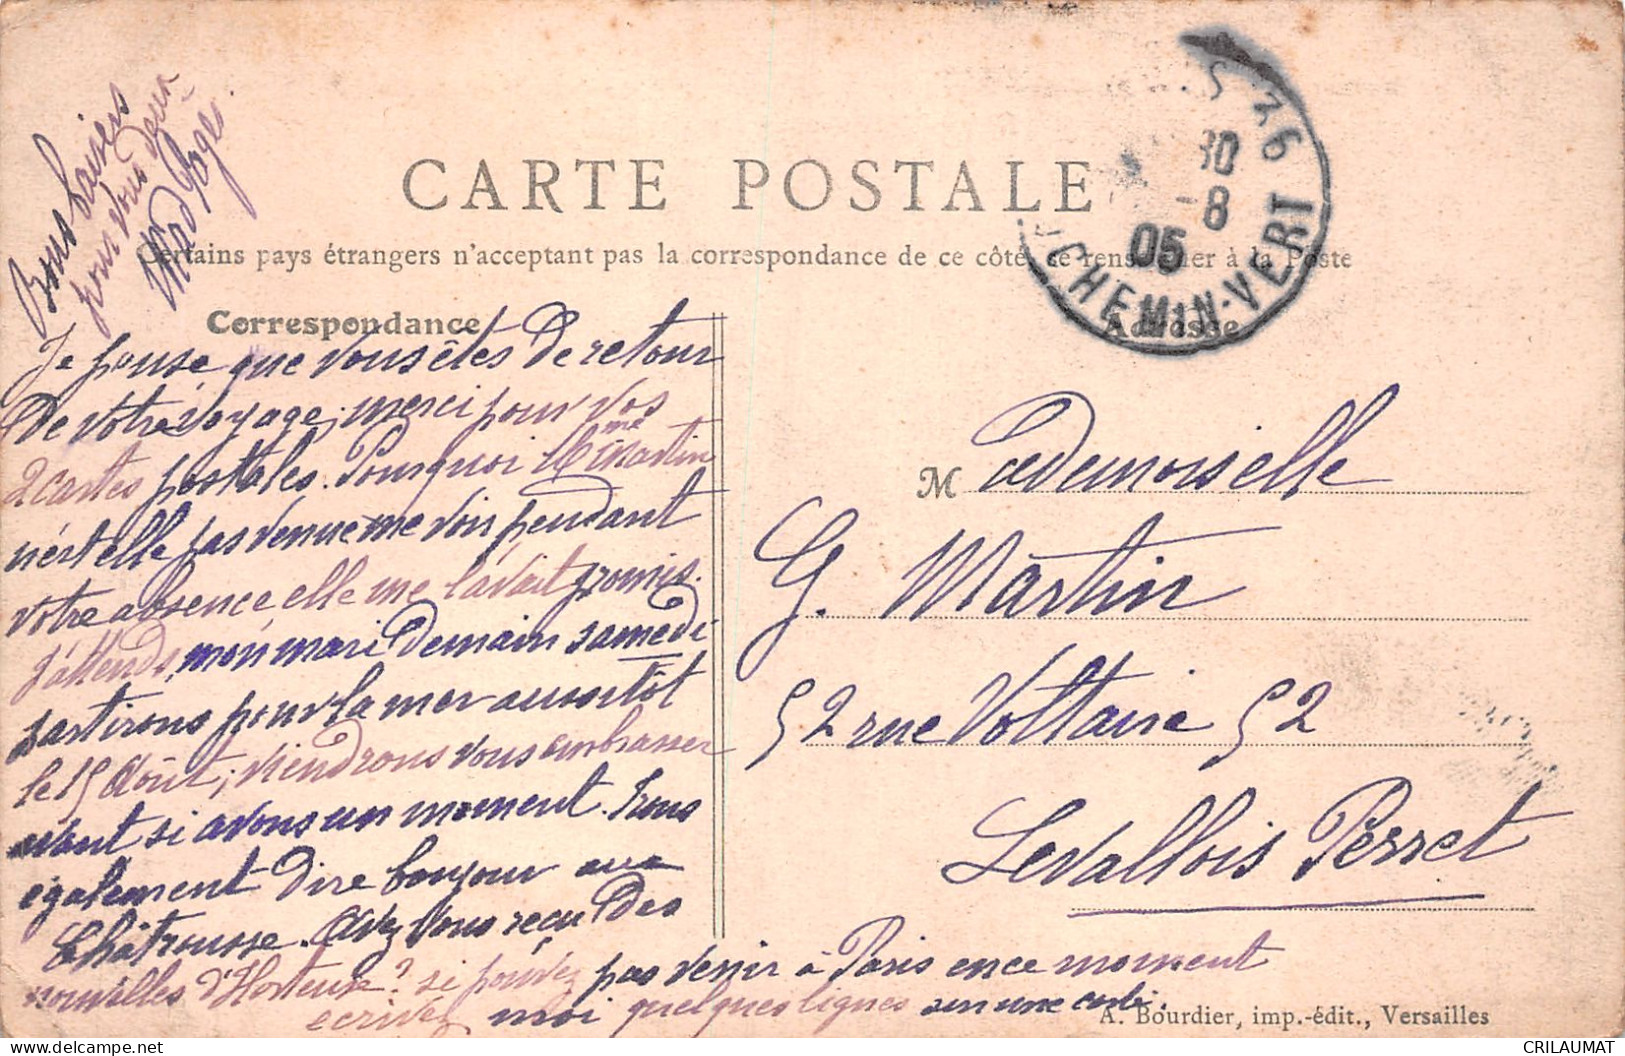 Bons baisers
pour vous deux
Mad Pagès.
CARTE POSTALE
Certains pays étrangers n'acceptant pas la correspondance de ce côté, se renseigner à la Poste
S 46
30
-8
05
CHEMIN-VERT
Correspondance
Adresse
Je pense que vous êtes de retour
de votre voyage, merci pour vos
2 cartes postales. Pourquoi Mme Martin
n'est elle pas venue me voir pendant
votre absence, elle me l'avait promis.
J'attends, mon mari demain samedi
partirons pour la mer aussitôt
le 15 Août, viendrons vous embrasser
avant si avons un moment. Irons
également dire bonjour aux
Châtrousse. Avez vous reçu des
nouvelles d'Hortense? si pouvez pas venir à Paris en ce moment
ecrivez moi quelques lignes sur une carte.
Mademoiselle
G. Martin
52 rue Voltaire 52
Levallois Perret
A. Bourdier, imp.-édit., Versailles
CRILAUMAT